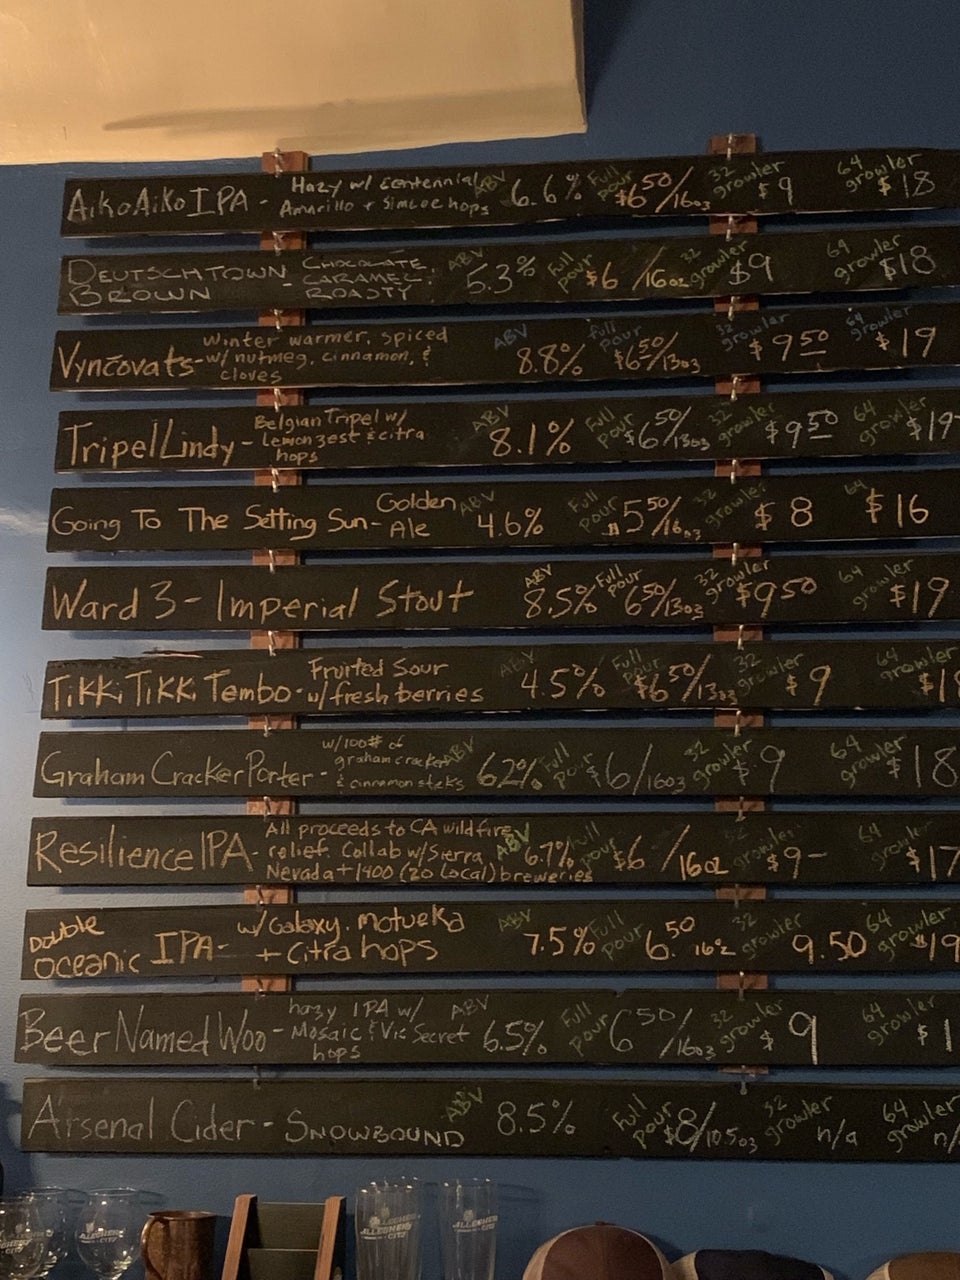 AikoAiko IPA - Hazy w/ Centennial, Amarillo + Simcoe hops ABV 6.6% Full pour $650/16oz 32 growler $9 64 growler $18
DEUTSCHTOWN BROWN - CHOCOLATE, CARAMEL, ROASTY ABV 5.3% full pour $6/16oz 32 growler $9 64 growler $18
Vyncovats - Winter warmer, spiced w/ nutmeg, cinnamon, & cloves ABV 8.8% full pour $650/13oz 32 growler $950 64 growler $19
TripelLindy - Belgian Tripel w/ Lemon zest & citra hops ABV 8.1% Full pour $650/13oz 32 growler $950 64 growler $19
Going To The Setting Sun - Golden Ale ABV 4.6% Full pour $550/16oz 32 growler $8 64 $16
Ward 3 - Imperial Stout ABV 8.5% Full pour 650/13oz 32 growler $950 64 growler $19
Tikki Tikki Tembo - Fruited Sour w/ fresh berries ABV 4.5% Full pour $650/13oz 32 growler $9 64 growler
Graham Cracker Porter - w/100# of graham crackers & cinnamon sticks ABV 6.2% Full pour $6/16oz 32 growler $9 64 growler $18
Resilience IPA - All proceeds to CA wildfire relief. Collab w/Sierra Nevada + 1400 (20 Local) breweries ABV 6.7% Full pour $6/16oz 32 growler $9- 64 growler $17
Double Oceanic IPA - w/ Galaxy, Motueka + Citra hops ABV 7.5% Full pour 6.50 16oz 32 growler 9.50 64 growler $19
Beer Named Woo - hazy IPA w/ Mosaic & Vic Secret hops ABV 6.5% Full pour 650/16oz 32 growler $9 64 growler
Arsenal Cider - SNOWBOUND ABV 8.5% Full pour $8/10.5oz 32 growler n/a 64 growler n/
ALLEGHENY CITY
ALLEGHENY CITY